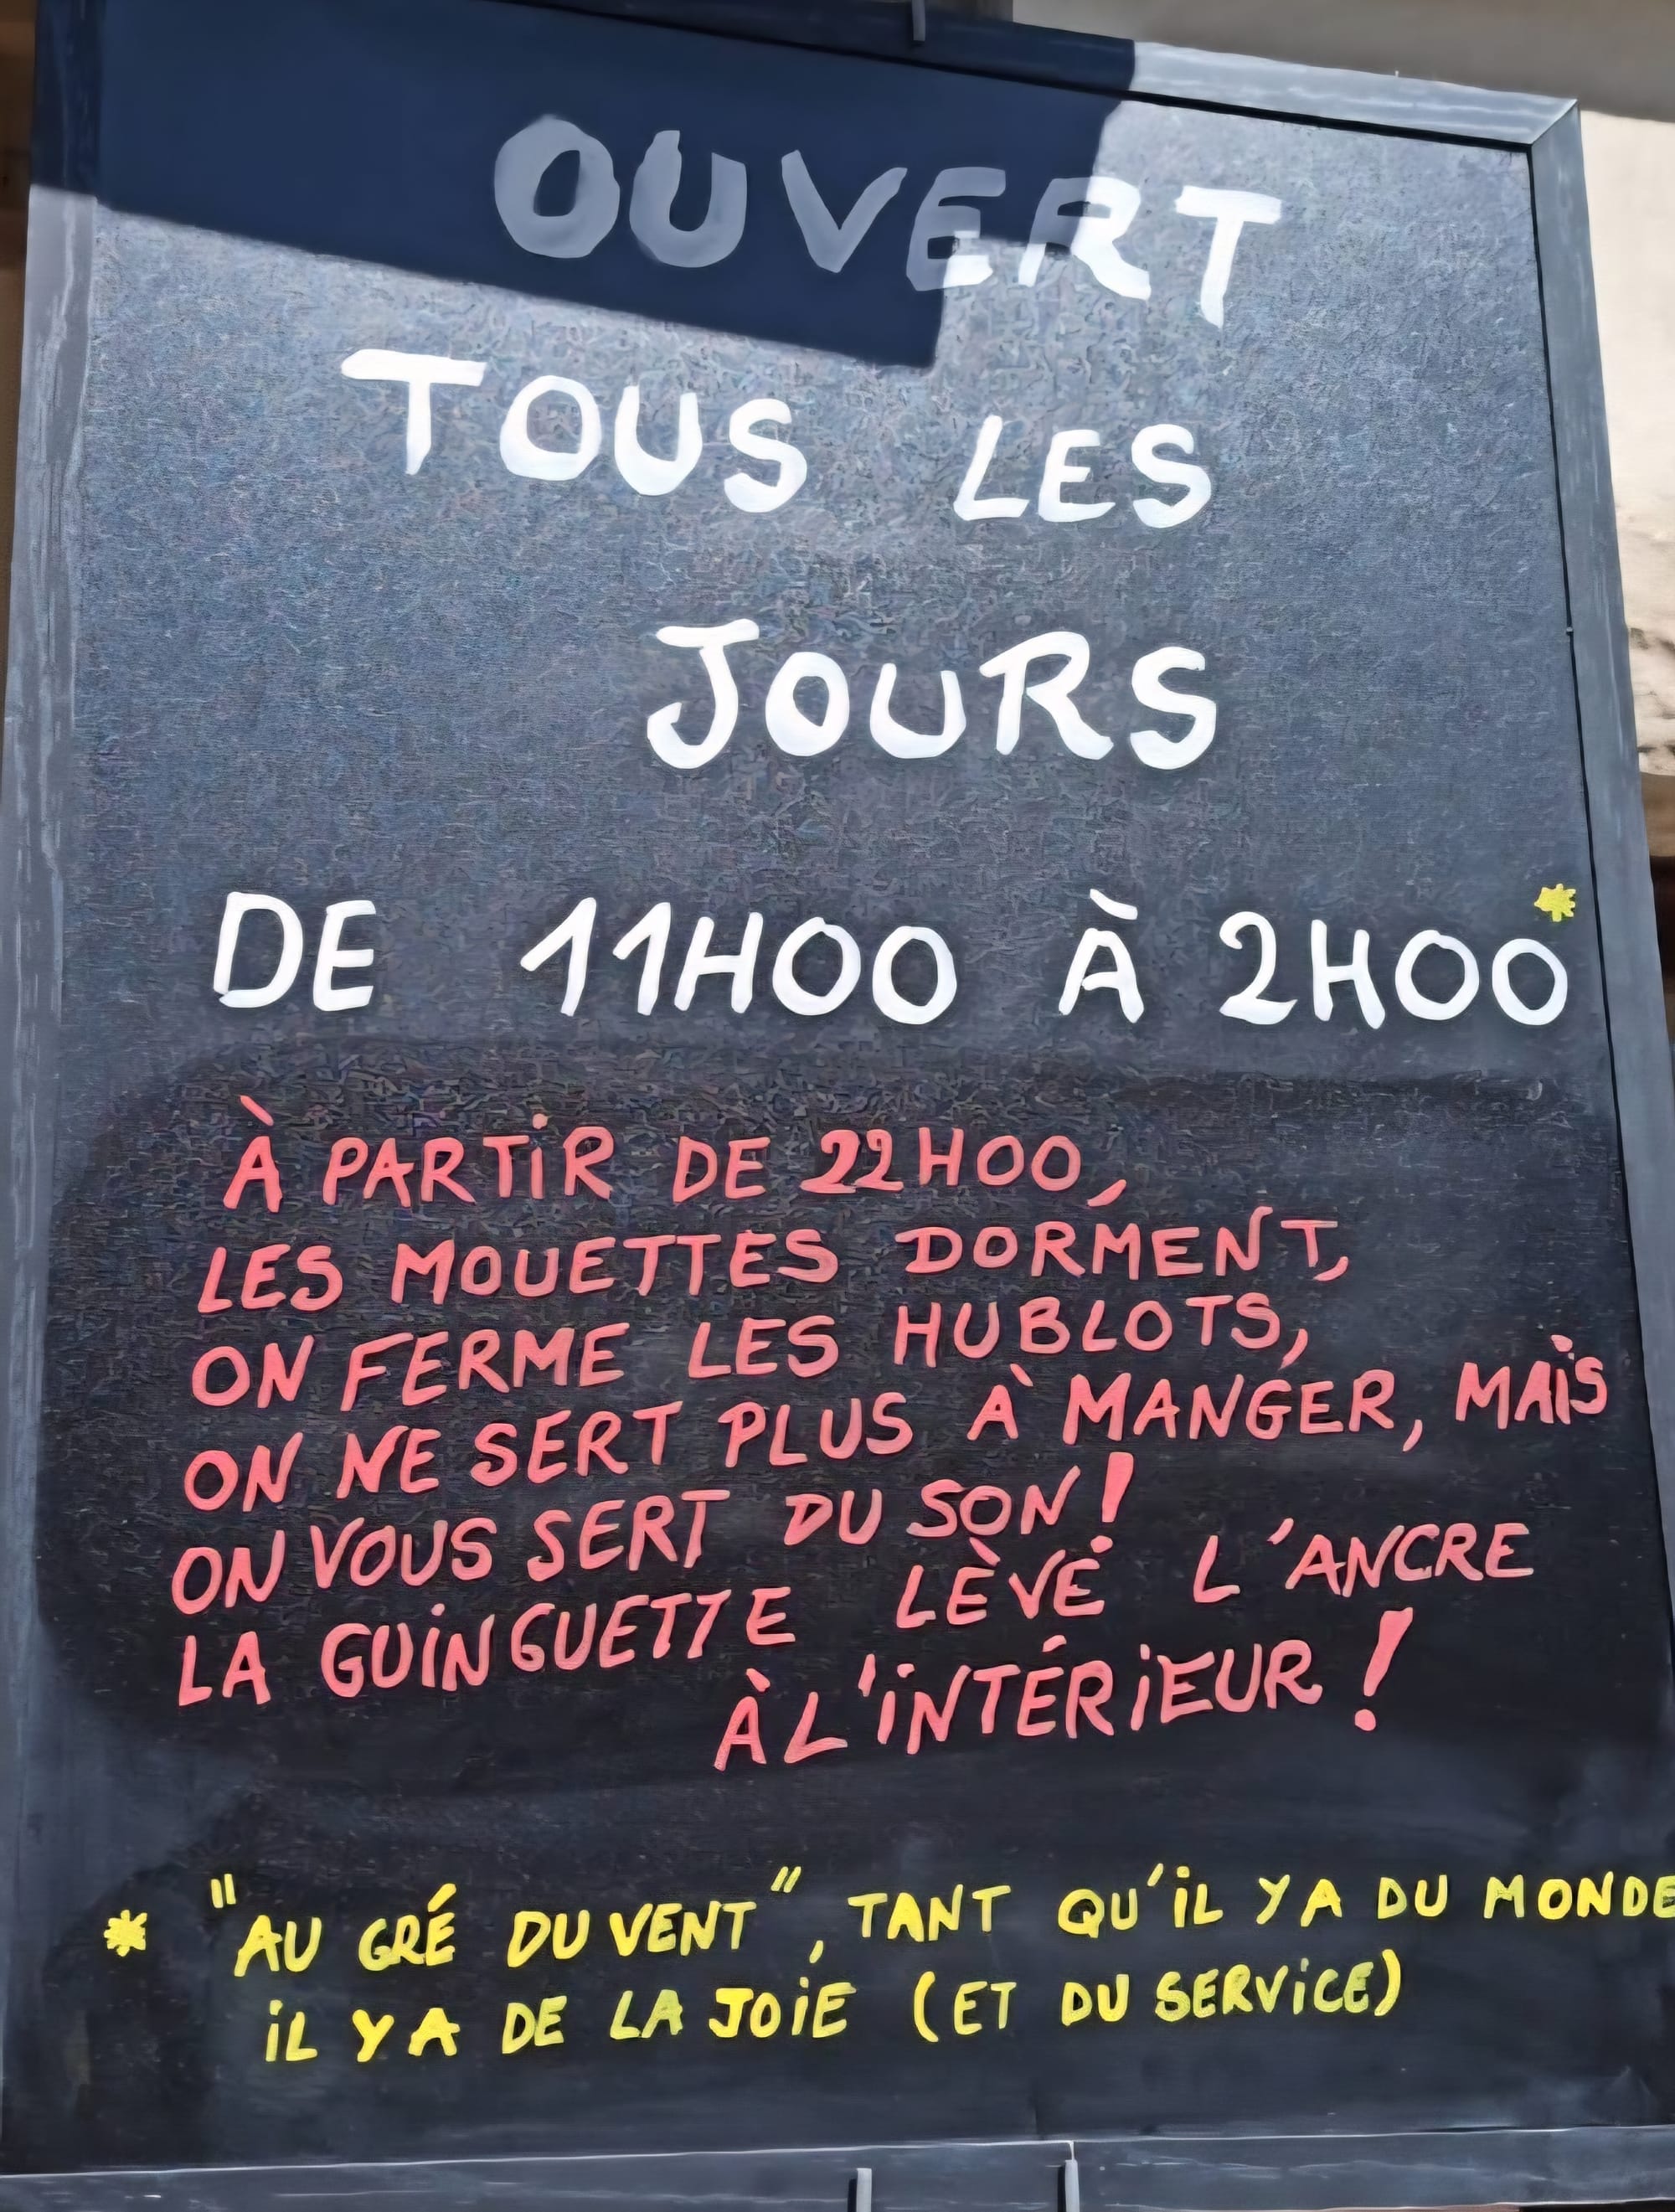 OUVERT
TOUS LES
JOURS
DE 11H00 À 2H00*
À PARTIR DE 22H00,
LES MOUETTES DORMENT,
ON FERME LES HUBLOTS,
ON NE SERT PLUS À MANGER, MAIS
ON VOUS SERT DU SON !
LA GUINGUETTE LÈVE L'ANCRE
À L'INTÉRIEUR !
* "AU GRÉ DU VENT", TANT QU'IL Y A DU MONDE
IL Y A DE LA JOIE (ET DU SERVICE)